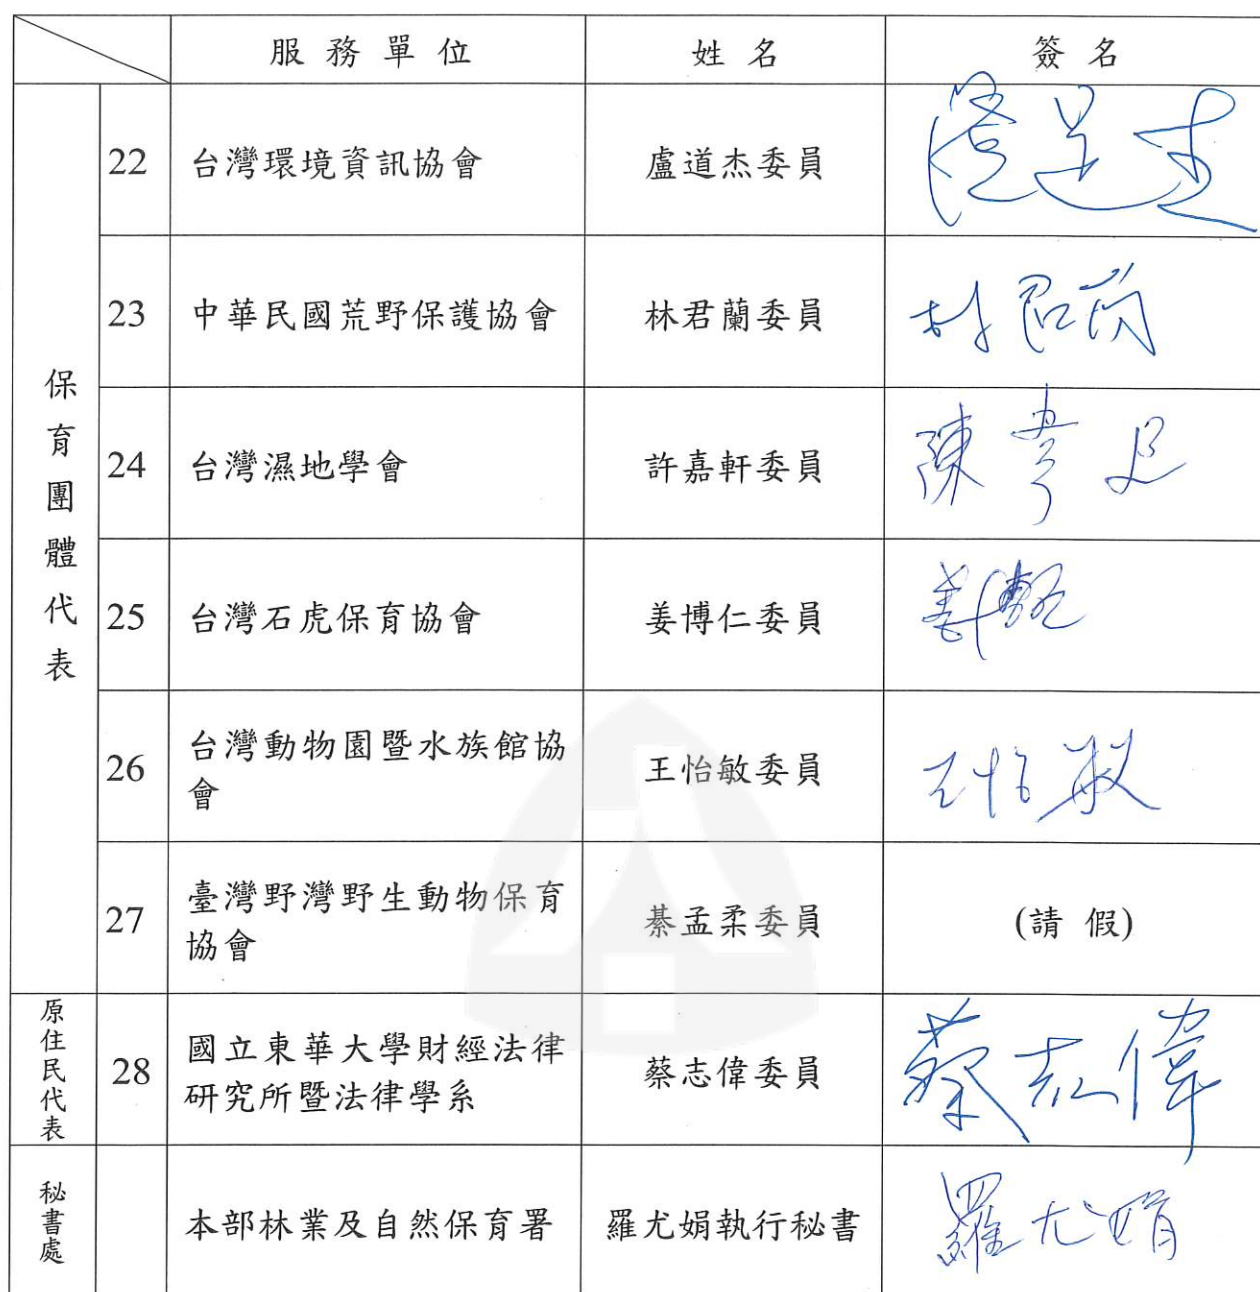 服務單位 姓名 簽名
保育團體代表
22 台灣環境資訊協會 盧道杰委員
23 中華民國荒野保護協會 林君蘭委員 林君蘭
24 台灣濕地學會 許嘉軒委員
25 台灣石虎保育協會 姜博仁委員
26 台灣動物園暨水族館協
會 王怡敏委員 王怡敏
27 臺灣野灣野生動物保育
協會 綦孟柔委員 (請 假)
原住民代表
28 國立東華大學財經法律
研究所暨法律學系 蔡志偉委員 蔡志偉
秘書處
本部林業及自然保育署 羅尤娟執行秘書 羅尤娟